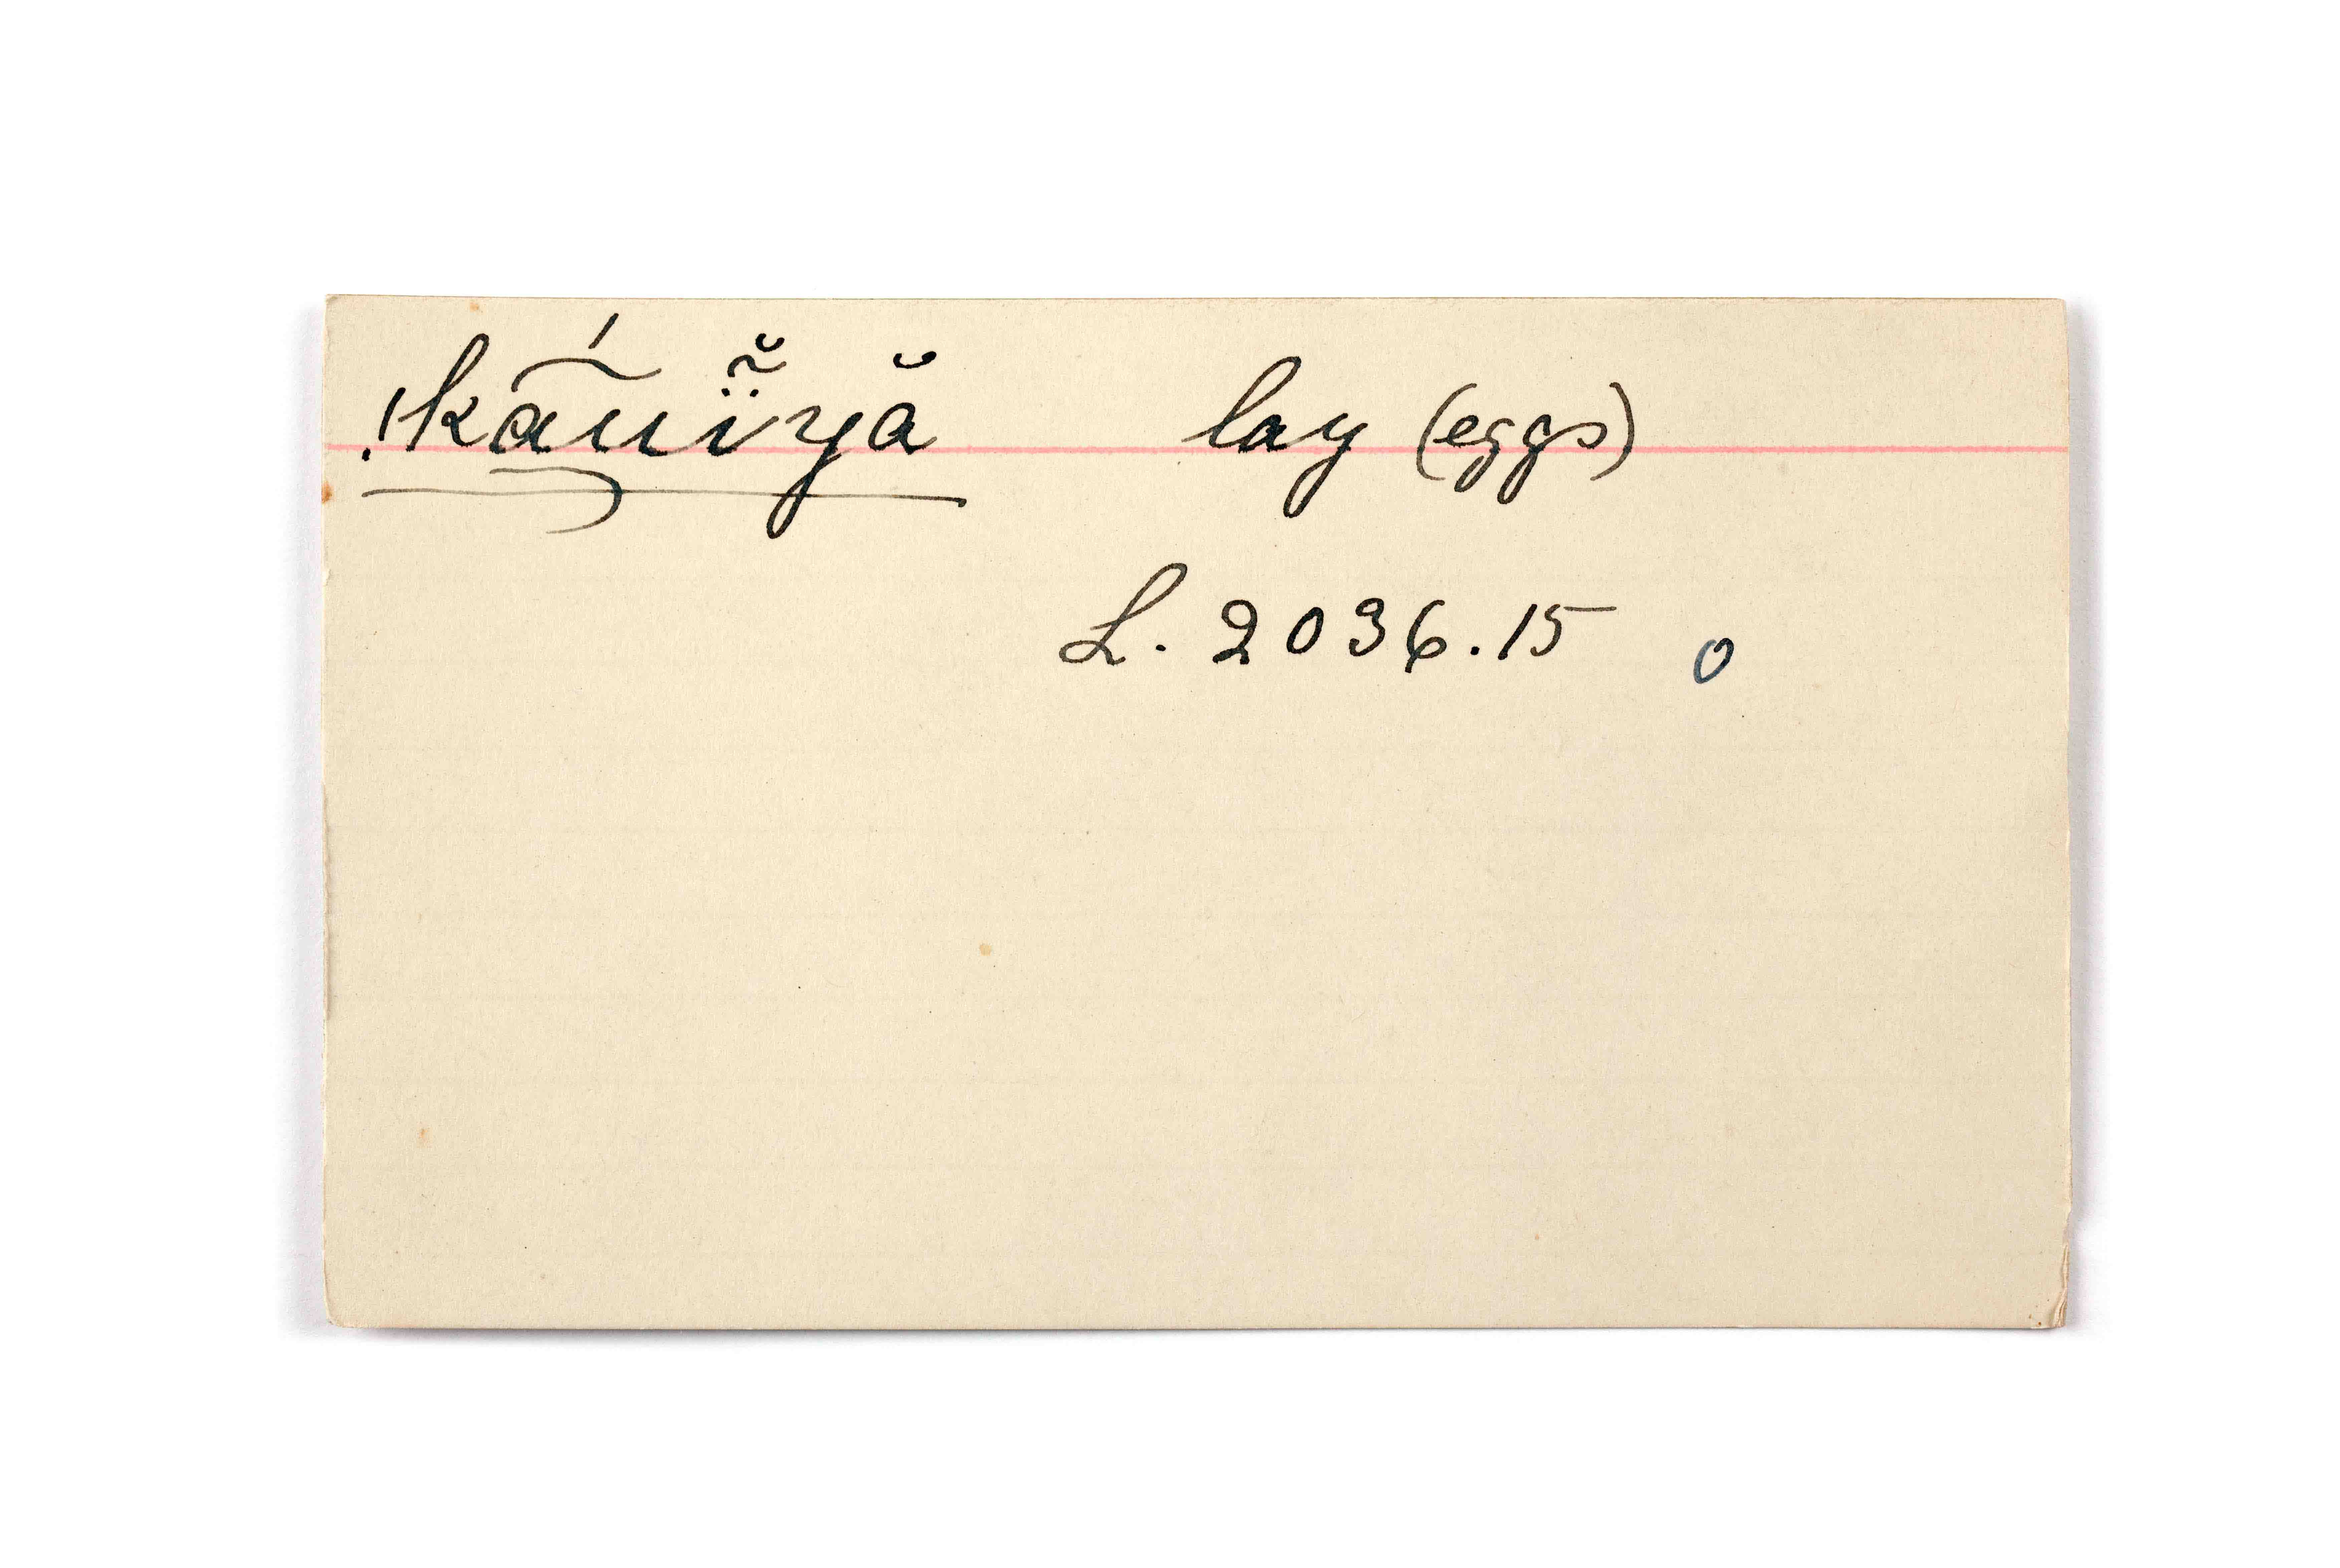 !káu͠ĭyă lay (eggs)
L. 2036.15 0